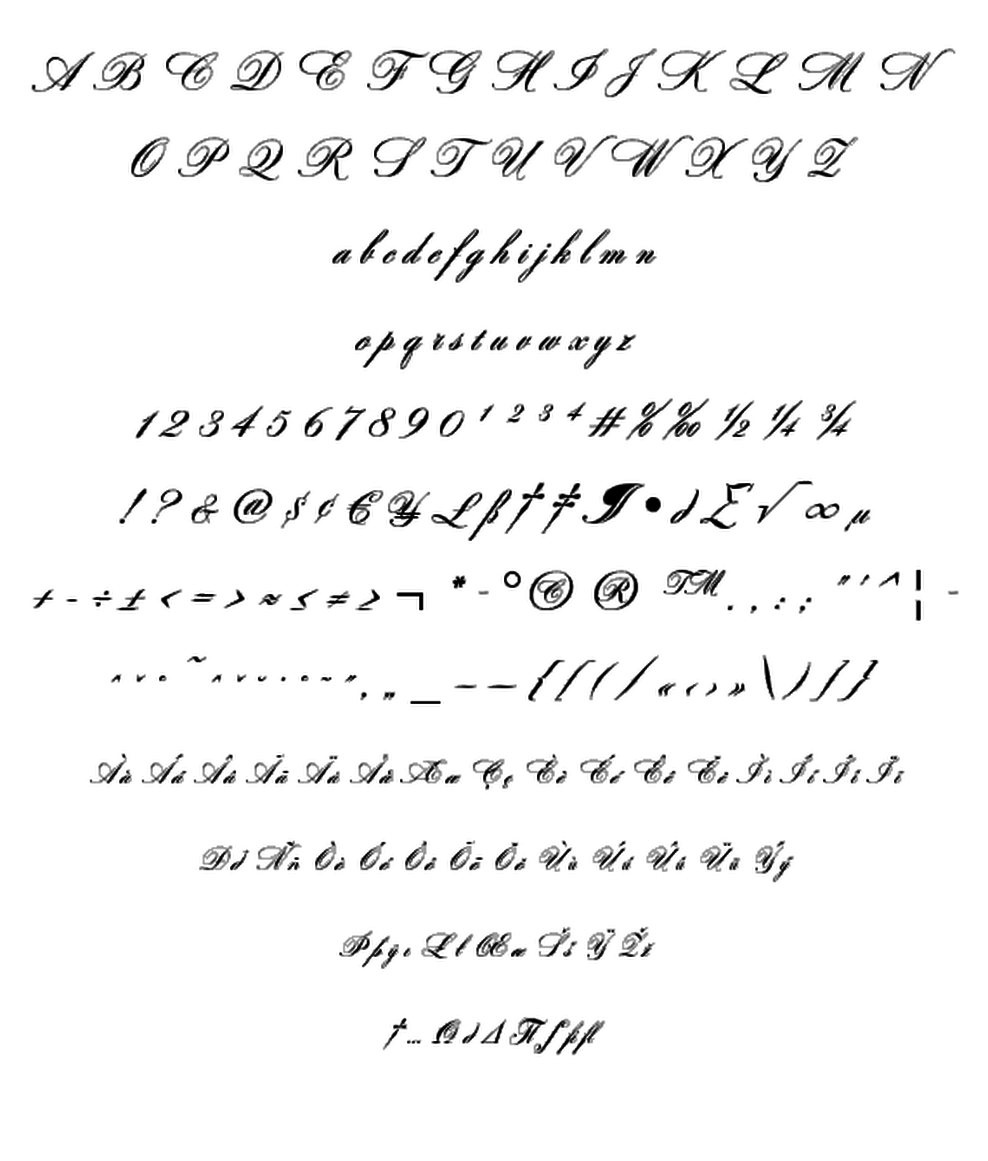 A B C D E F G H I J K L M N
O P Q R S T U V W X Y Z
a b c d e f g h i j k l m n
o p q r s t u v w x y z
1 2 3 4 5 6 7 8 9 0 ¹ ² ³ ⁴ # % ‰ ½ ¼ ¾
! ? & @ $ ¢ € ¥ £ ß † ‡ ¶ • ∂ Σ √ ∞ µ
+ - ÷ ± < = > ≈ ≤ ≠ ≥ ¬ * - ° © ® ™ . , : ; " ' ^ ¦ -
{ [ ( / « ‹ › » \ ) ] }
Àà Áá Ââ Ãã Ää Åå Ææ Çç Èè Éé Êê Ëë Ìì Íí Îî Ïï
Ðð Ññ Òò Óó Ôô Õõ Öö Ùù Úú Ûû Üü Ýý
Þþ Łł Œœ Šš Ÿ Žž
† … Ω ∂ Δ Π ∫ fi fl